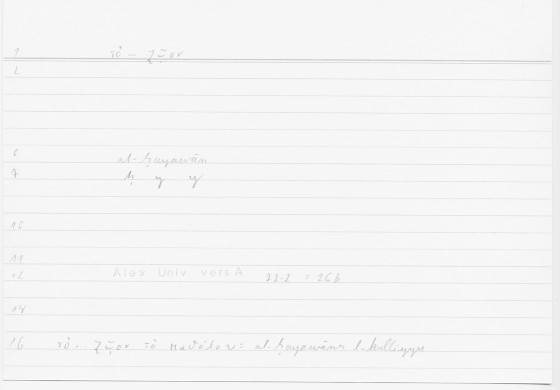 1 τὸ ... ζῷον
2
6 al-ḥayawān
7 ḥ y y
10
11
12 Alex Univ vers A 22-2 = 26b
14
16 τὸ ... ζῷον τὸ καθόλου = al-ḥayawānu l-kulliyyu